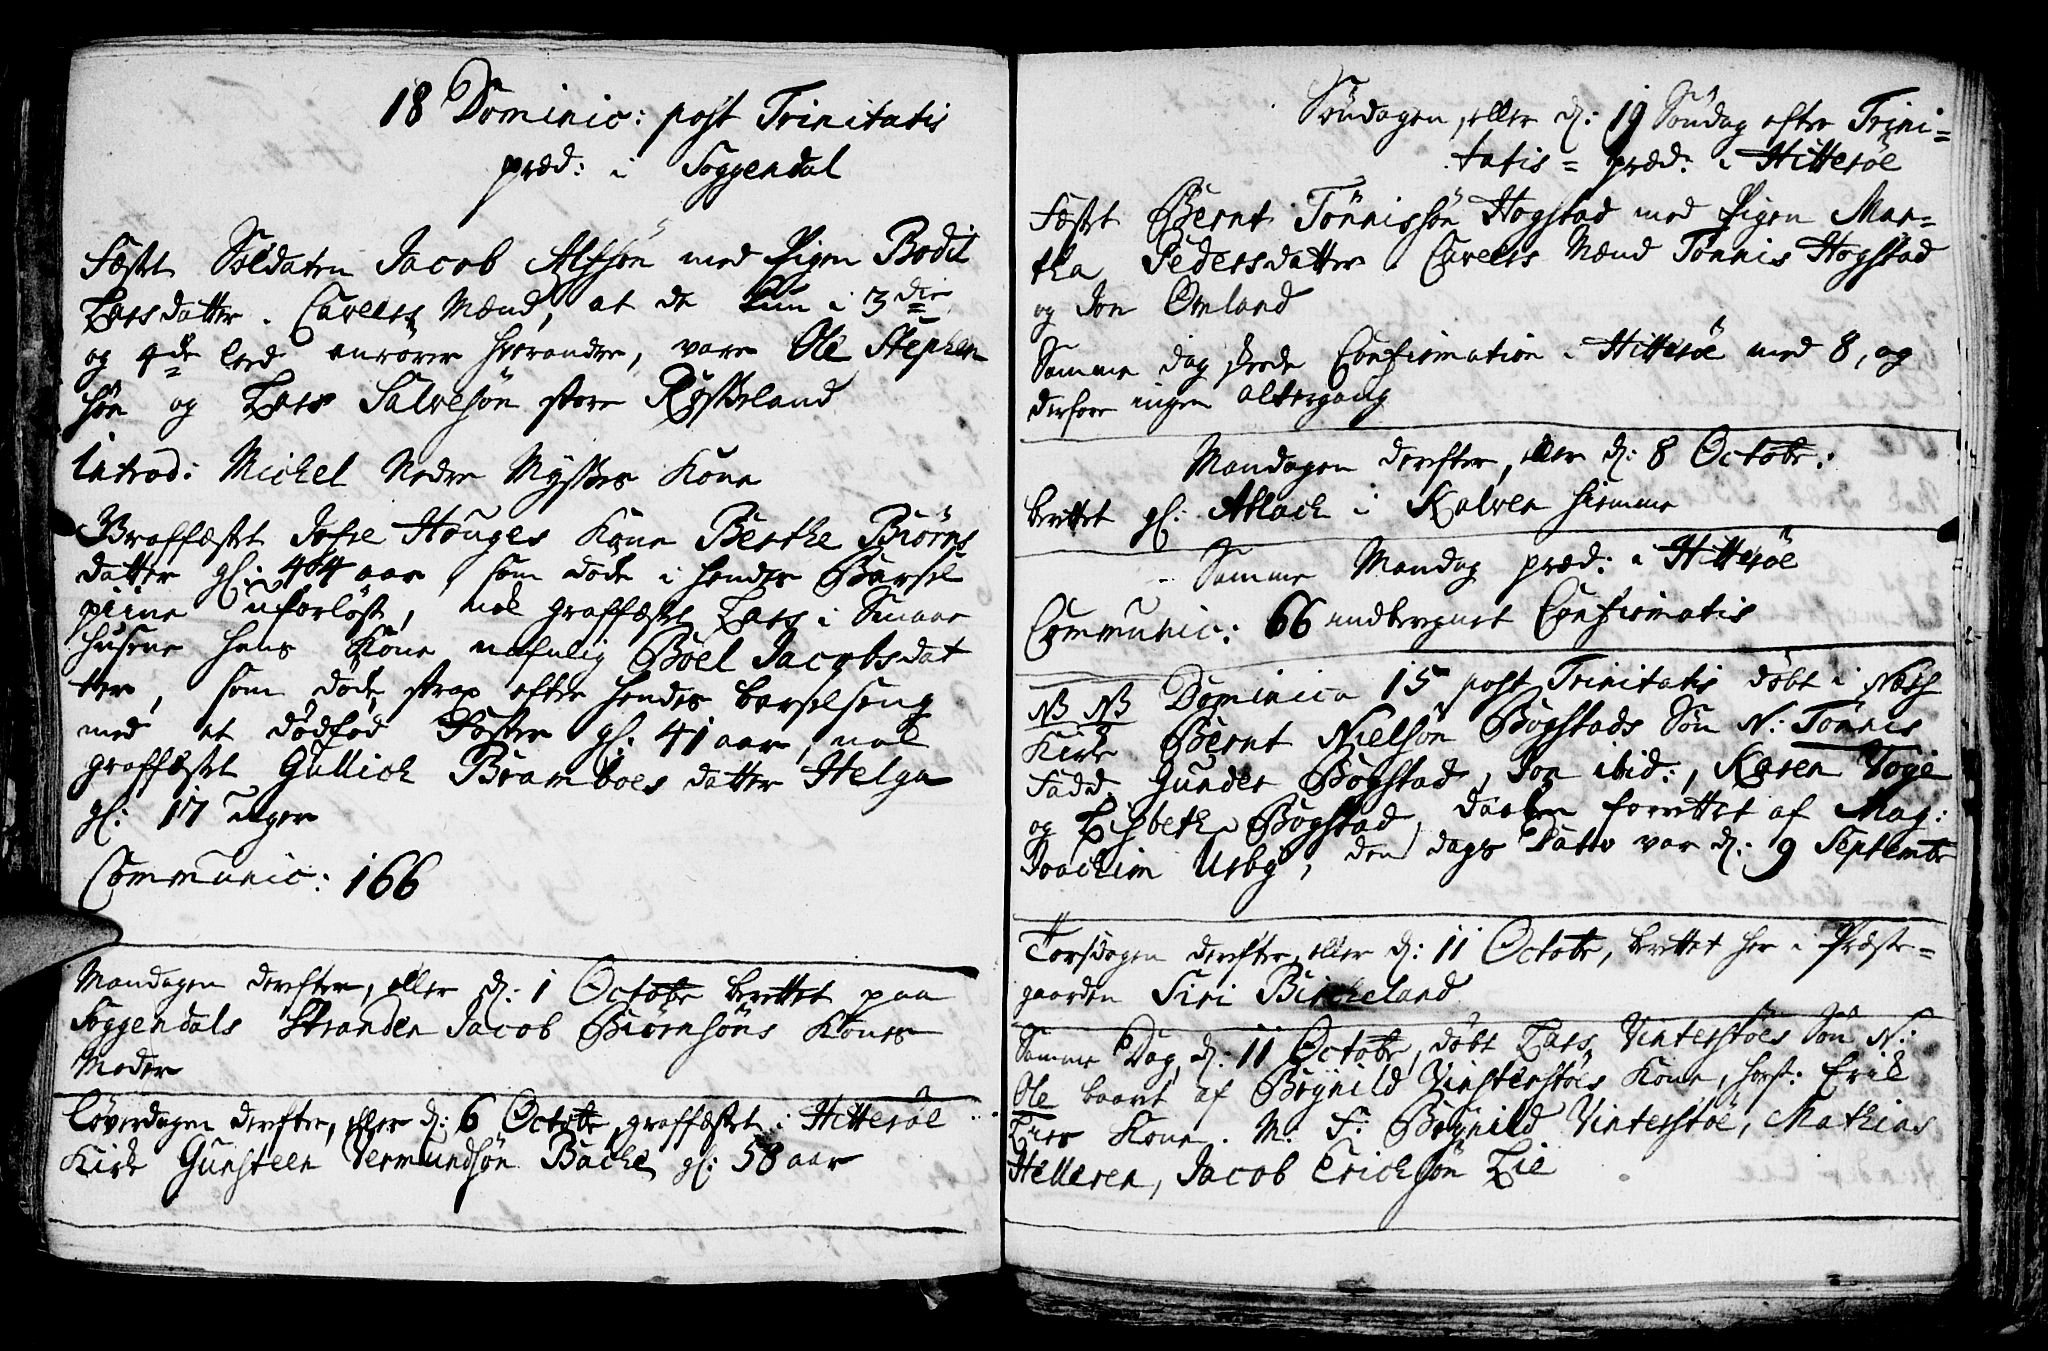 18 Dominic: post Trinitatis
præd: i Soggendal
Fæstet Soldaten Jacob Alfsøn med Pigen Bodil
Larsdatter. Caveers Mænd, at de kun i 3die
og 4de leed anrører hverandre, vare Ole Stephen
søn og Lars Salvesøn store Rysseland
Introd: Michel Nedre Mysses Kone
Graffæstet Tosse Houges Kone Berthe Biørns
datter gl: 44 aar, som døde i hendes Barsel
piine uforløst, nok graffæstet Lars i Smaae
husene hans Kone nafnlig Boel Jacobsdat
ter, som døde strax efter hendes barselseng
med et dødfød Foster gl: 41 aar, nok
graffæstet Gullich Bramboes datter Helga
gl: 17 uger
Communic: 166
Mandagen derefter, eller d: 1 Octobr berettet paa
Soggendals Stranden Jacob Biørnsøns Kones
Moder
Løverdagen derefter, eller d: 6 Octobr graffæstet i Hitterøe
Kirke Gunsteen Vermundsøn Bache gl: 58 aar
Søndagen, eller d: 19 Søndag efter Trini=
tatis = præd: i Hitterøe
Fæstet Bernt Tønnissøn Hogstad med Pigen Mar=
tha Pedersdatter. Caveers Mænd Tønnis Hogstad
og Jon Omland
Samme dag skede Confirmation i Hitterøe med 8, og
derfore ingen altergang
Mandagen derefter, eller d: 8 Octobr:
berettet gl: Aslach i Kalven hiemme
Samme Mandag præd: i Hitterøe
Communic: 66 indberegnet Confirmatis
NB NB Dominica 15 post Trinitatis døbt i Næs
Kirke Bernt Nielsøn Bøgstads Søn N: Tønnis
Fadd. Gunder Bøgstad, Jon ibid:, Karen Voge
og Lisbeth Bøgstad, daaben forrettet af Mag:
Joachim Usby, den dags Dato var d: 9 Septembr
Torsdagen derefter, eller d: 11 Octobr, berettet her i Præste=
gaarden Siri Bircheland
Samme Dag, d: 11 Octobr, døbt Lars Vinterstøes Søn N:
Ole baaret af Bøynild Vinterstøes Kone, host: Erik
Lies Kone. M. F: Bøynild Vinterstøe, Mathias
Helleren, Jacob Erichsøn Lie